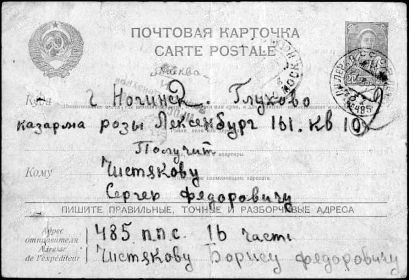 ПОЧТОВАЯ КАРТОЧКА
CARTE POSTALE
Куда г. Ногинск. Глухово
казарма розы Лексенбург 161. кв 10
Получит
Кому Чистякову
Сергею Федоровичу
ПИШИТЕ ПРАВИЛЬНЫЕ, ТОЧНЫЕ И РАЗБОРЧИВЫЕ АДРЕСА
Адрес отправителя
Adresse de l'expéditeur
485 п.п.с. 16 часть
Чистякову Борису федоровичу